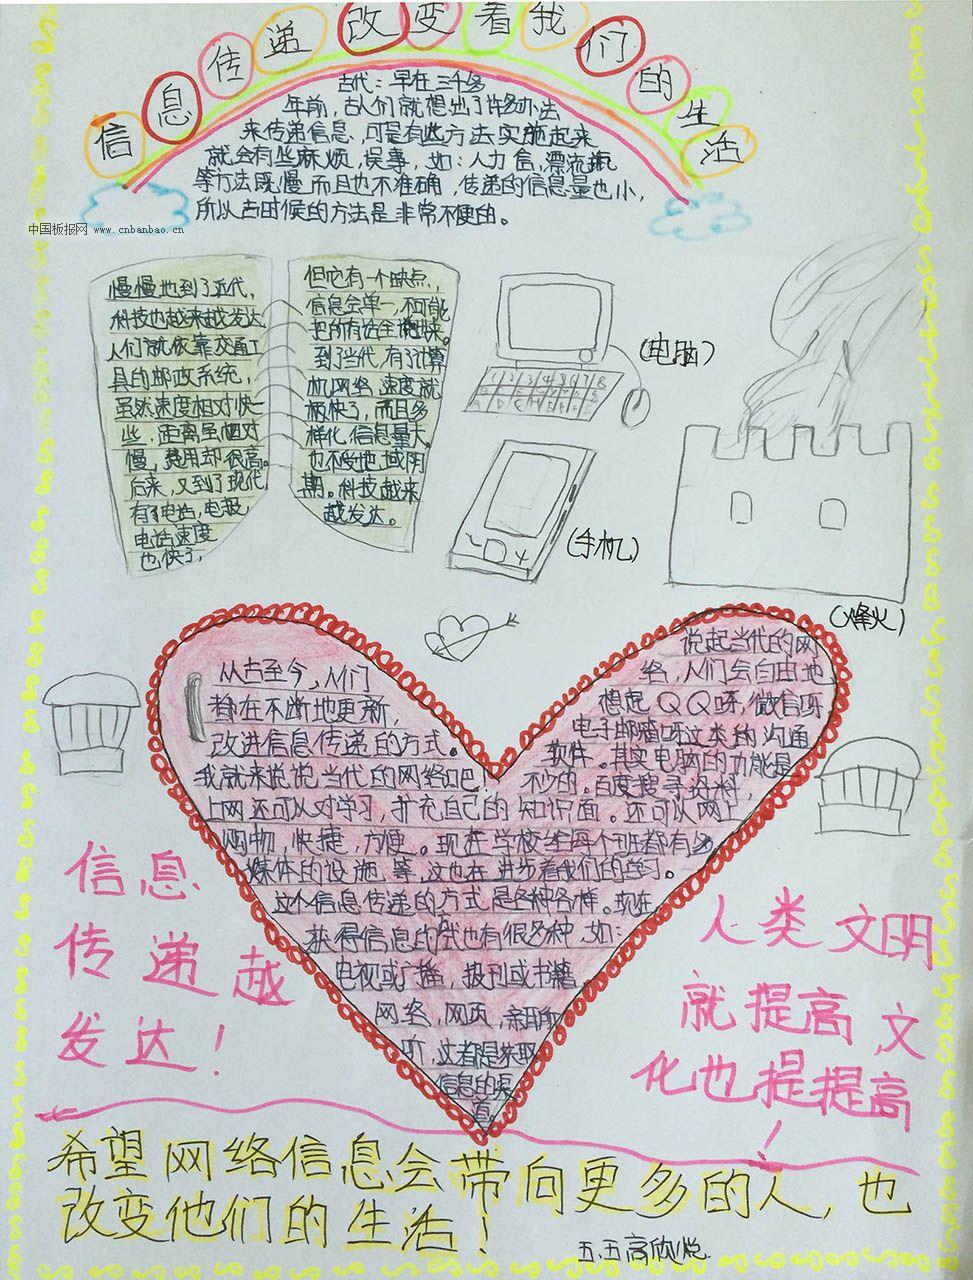 信息传递改变着我们的生活
古代：早在三千多
年前，古人们就想出了许多办法
来传递信息、可是有些方法实施起来
就会有些麻烦，误事，如：人力信，漂流瓶
等方法既慢而且也不准确，传递的信息量也小，
所以古时候的方法是非常不便的。
中国板报网 www.cnbanbao.cn
慢慢地到了近代，
科技也越来越发达
人们就依靠交通工
具的邮政系统，
虽然速度相对快一
些，距离虽相对
慢，费用却很高。
后来，又到了现代
有了电话，电报，
电话速度
也快了，
但它有一个缺点，
信息会单一，不可能
把所有话全说出来。
到了当代，有了计算
机网络，速度就
极快了，而且多
样化，信息量大。
也不受地域期
期。科技越来
越发达。
(电脑)
(手机)
(烽火)
从古至今，人们
都在不断地更新，
改进信息传递的方式。
我就来说说当代的网络吧
上网还可以对学习，扩充自己的知识面。还可以网上
购物，快捷，方便。现在学校给每个班都有多
媒体的设施等，这也在进步着我们的学习。
这个信息传递的方式是各种各样。现在，
获得信息的式也有很各种，如：
电视或广播，报刊或书籍
网络，网页，亲耳所
听，这都是获取
信息的渠
道。
说起当代的网
络，人们会自由地
想起QQ呀，微信呀
电子邮箱呀这类的沟通
软件。其实电脑的功能是
不少的。百度搜寻资料，
信息
传递越
发达！
人类文明
就提高，文
化也提提高
！
希望网络信息会带向更多的人，也
改变他们的生活！
五.五高欣悦